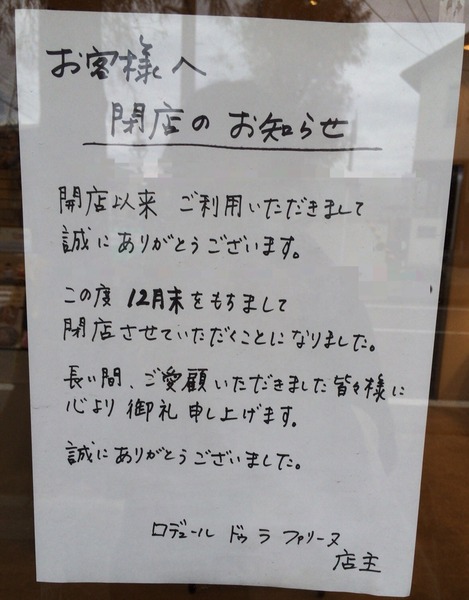 お客様へ
閉店のお知らせ
開店以来 ご利用いただきまして
誠にありがとうございます。
この度 12月末をもちまして
閉店させていただくことになりました。
長い間、ご愛顧いただきました皆々様に
心より御礼申し上げます。
誠にありがとうございました。
ロデュール ドゥ ラ ファリーヌ
店主